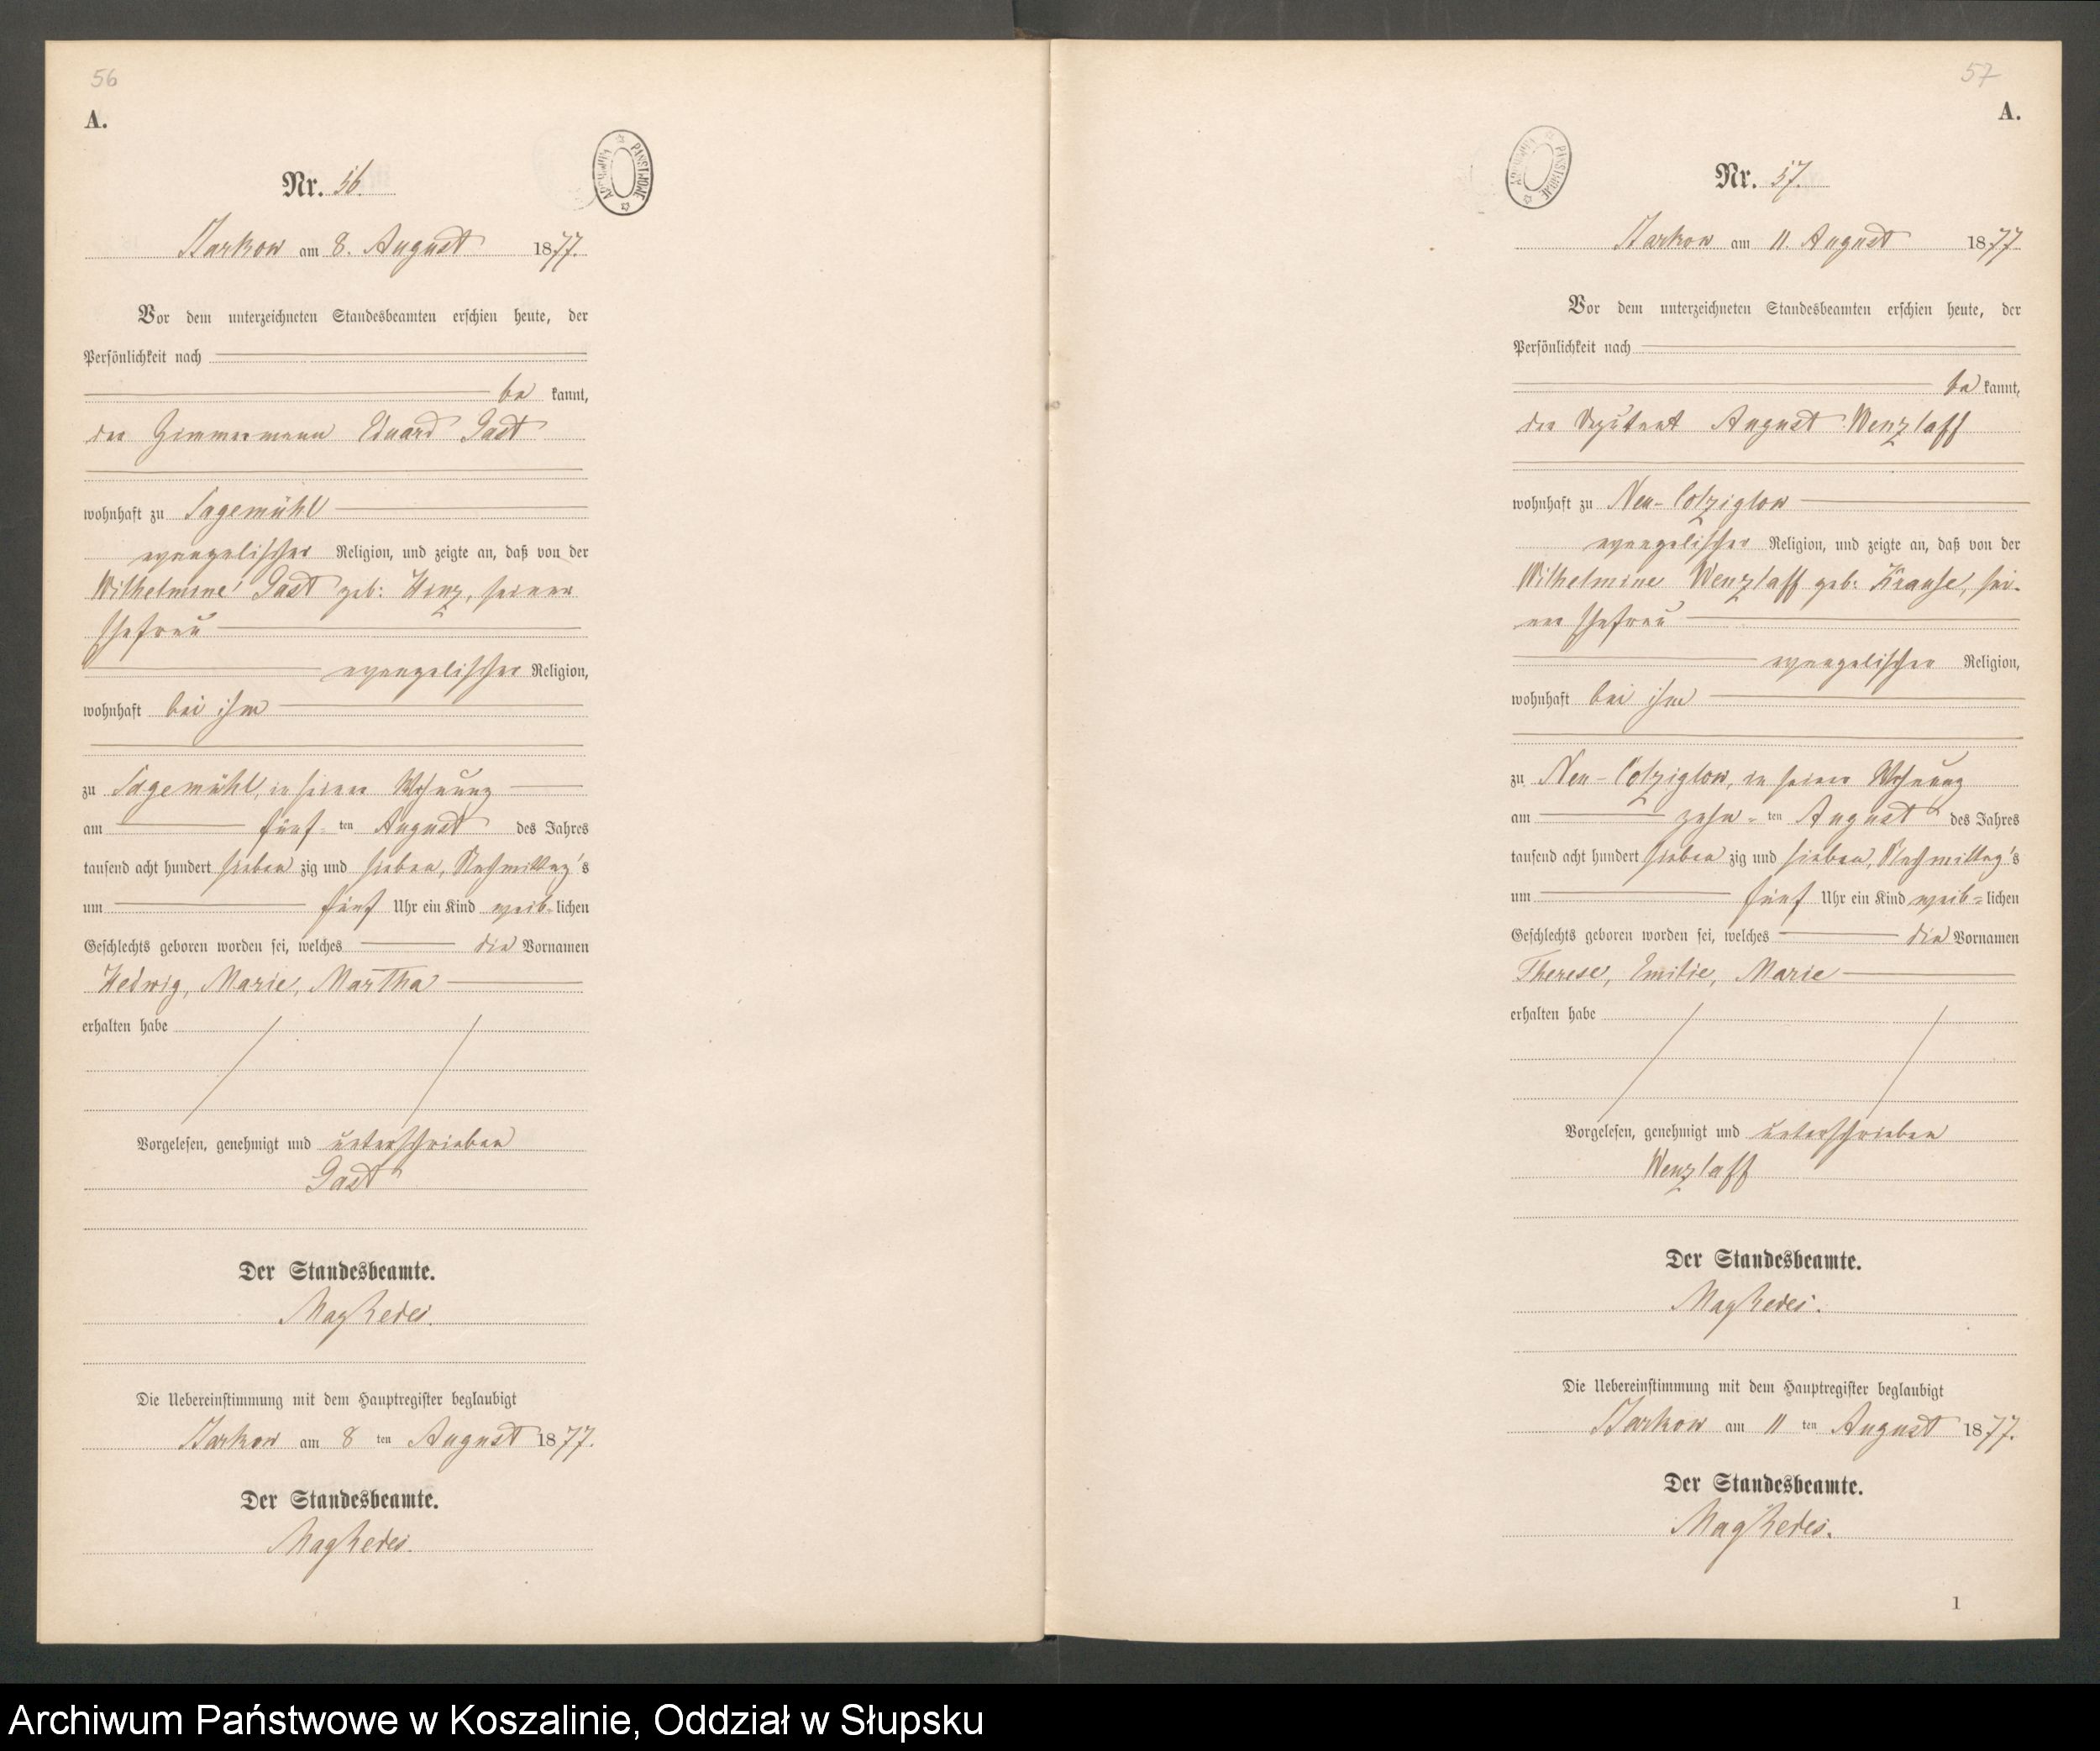 56
A.
ARCHIWUM PAŃSTWOWE
Nr. 56.
Barkow am 8. August 1877.
Vor dem unterzeichneten Standesbeamten erschien heute, der
Persönlichkeit nach
be kannt,
der Zimmermann Eduard Gast
wohnhaft zu Sagemühl
evangelischer Religion, und zeigte an, daß von der
Wilhelmine Gast geb: Hinz, seiner
Ehefrau
evangelischer Religion,
wohnhaft bei ihm
zu Sagemühl, in seiner Wohnung
am fünf- ten August des Jahres
tausend acht hundert sieben zig und sieben, Nachmittag's
um fünf Uhr ein Kind weib-lichen
Geschlechts geboren worden sei, welches die Vornamen
Hedwig, Marie, Martha
erhalten habe
Vorgelesen, genehmigt und unterschrieben
Gast
Der Standesbeamte.
Die Uebereinstimmung mit dem Hauptregister beglaubigt
Barkow am 8 ten August 1877.
Der Standesbeamte.
57
A.
ARCHIWUM PAŃSTWOWE
Nr. 57.
Barkow am 11. August 1877
Vor dem unterzeichneten Standesbeamten erschien heute, der
Persönlichkeit nach
be kannt,
der Deputant August Wenzlaff
wohnhaft zu Neu-Colziglow
evangelischer Religion, und zeigte an, daß von der
Wilhelmine Wenzlaff geb: Krause, sei-
ner Ehefrau
evangelischer Religion,
wohnhaft bei ihm
zu Neu-Colziglow, in seiner Wohnung
am zehn- ten August des Jahres
tausend acht hundert sieben zig und sieben, Nachmittag's
um fünf Uhr ein Kind weib-lichen
Geschlechts geboren worden sei, welches die Vornamen
Therese, Emilie, Marie
erhalten habe
Vorgelesen, genehmigt und unterschrieben
Wenzlaff
Der Standesbeamte.
Die Uebereinstimmung mit dem Hauptregister beglaubigt
Barkow am 11 ten August 1877.
Der Standesbeamte.
1
Archiwum Państwowe w Koszalinie, Oddział w Słupsku